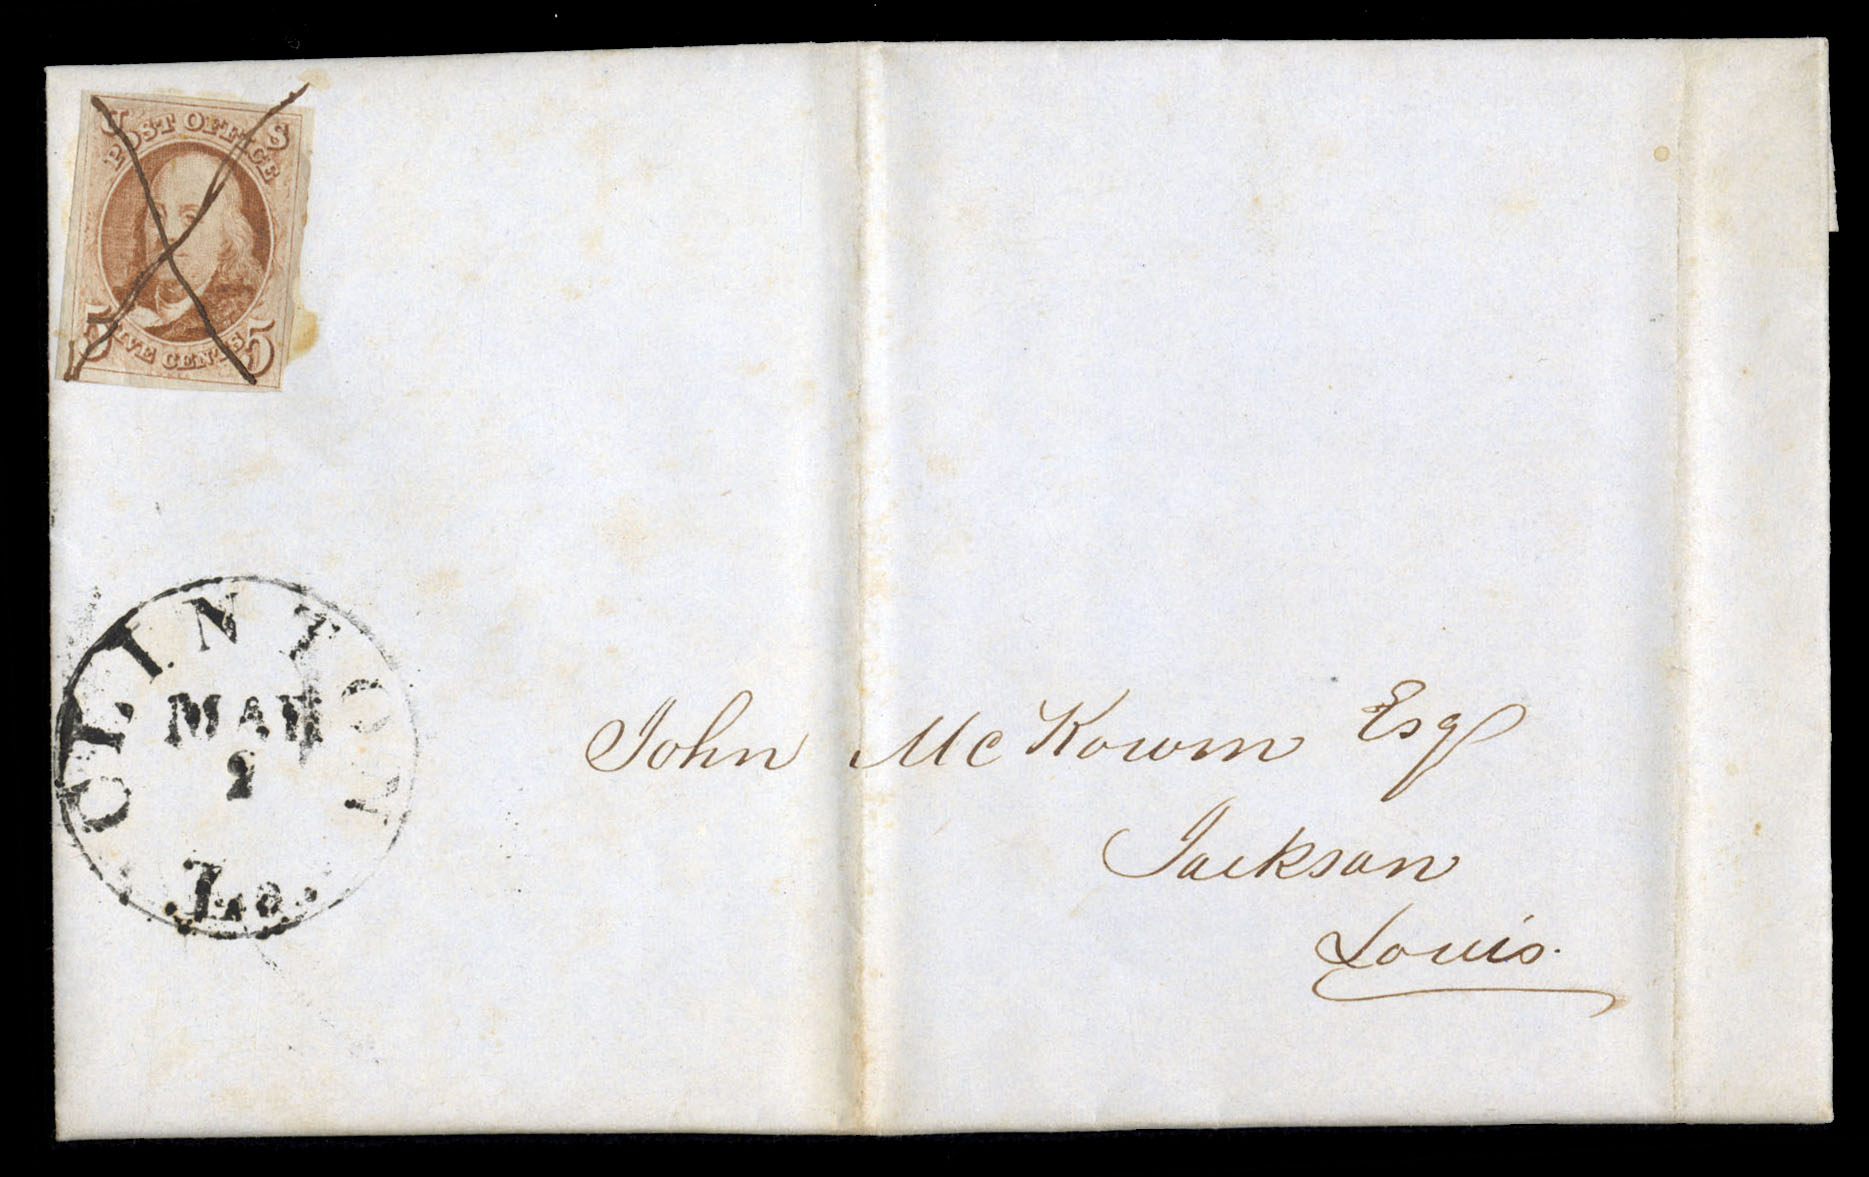 U S
POST OFFICE
5 FIVE CENTS 5
CLINTON
MAR
2
La.
John McKowm Esq
Jackson
Louis.